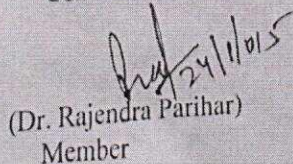 24/1/015
(Dr. Rajendra Parihar)
Member